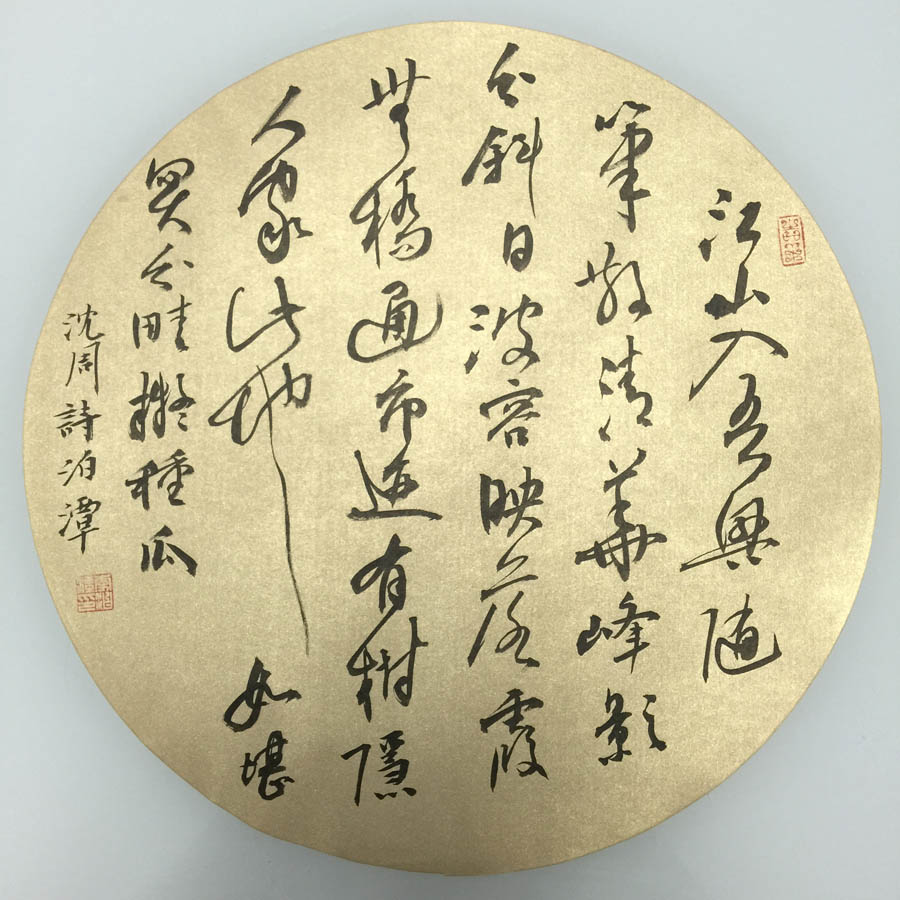 江山入吾興隨
筆清華峰影
分斜日波容映落霞
無橋通市有樹隱
人家此地如堪
買分畦擬種瓜
沈周詩泊潭